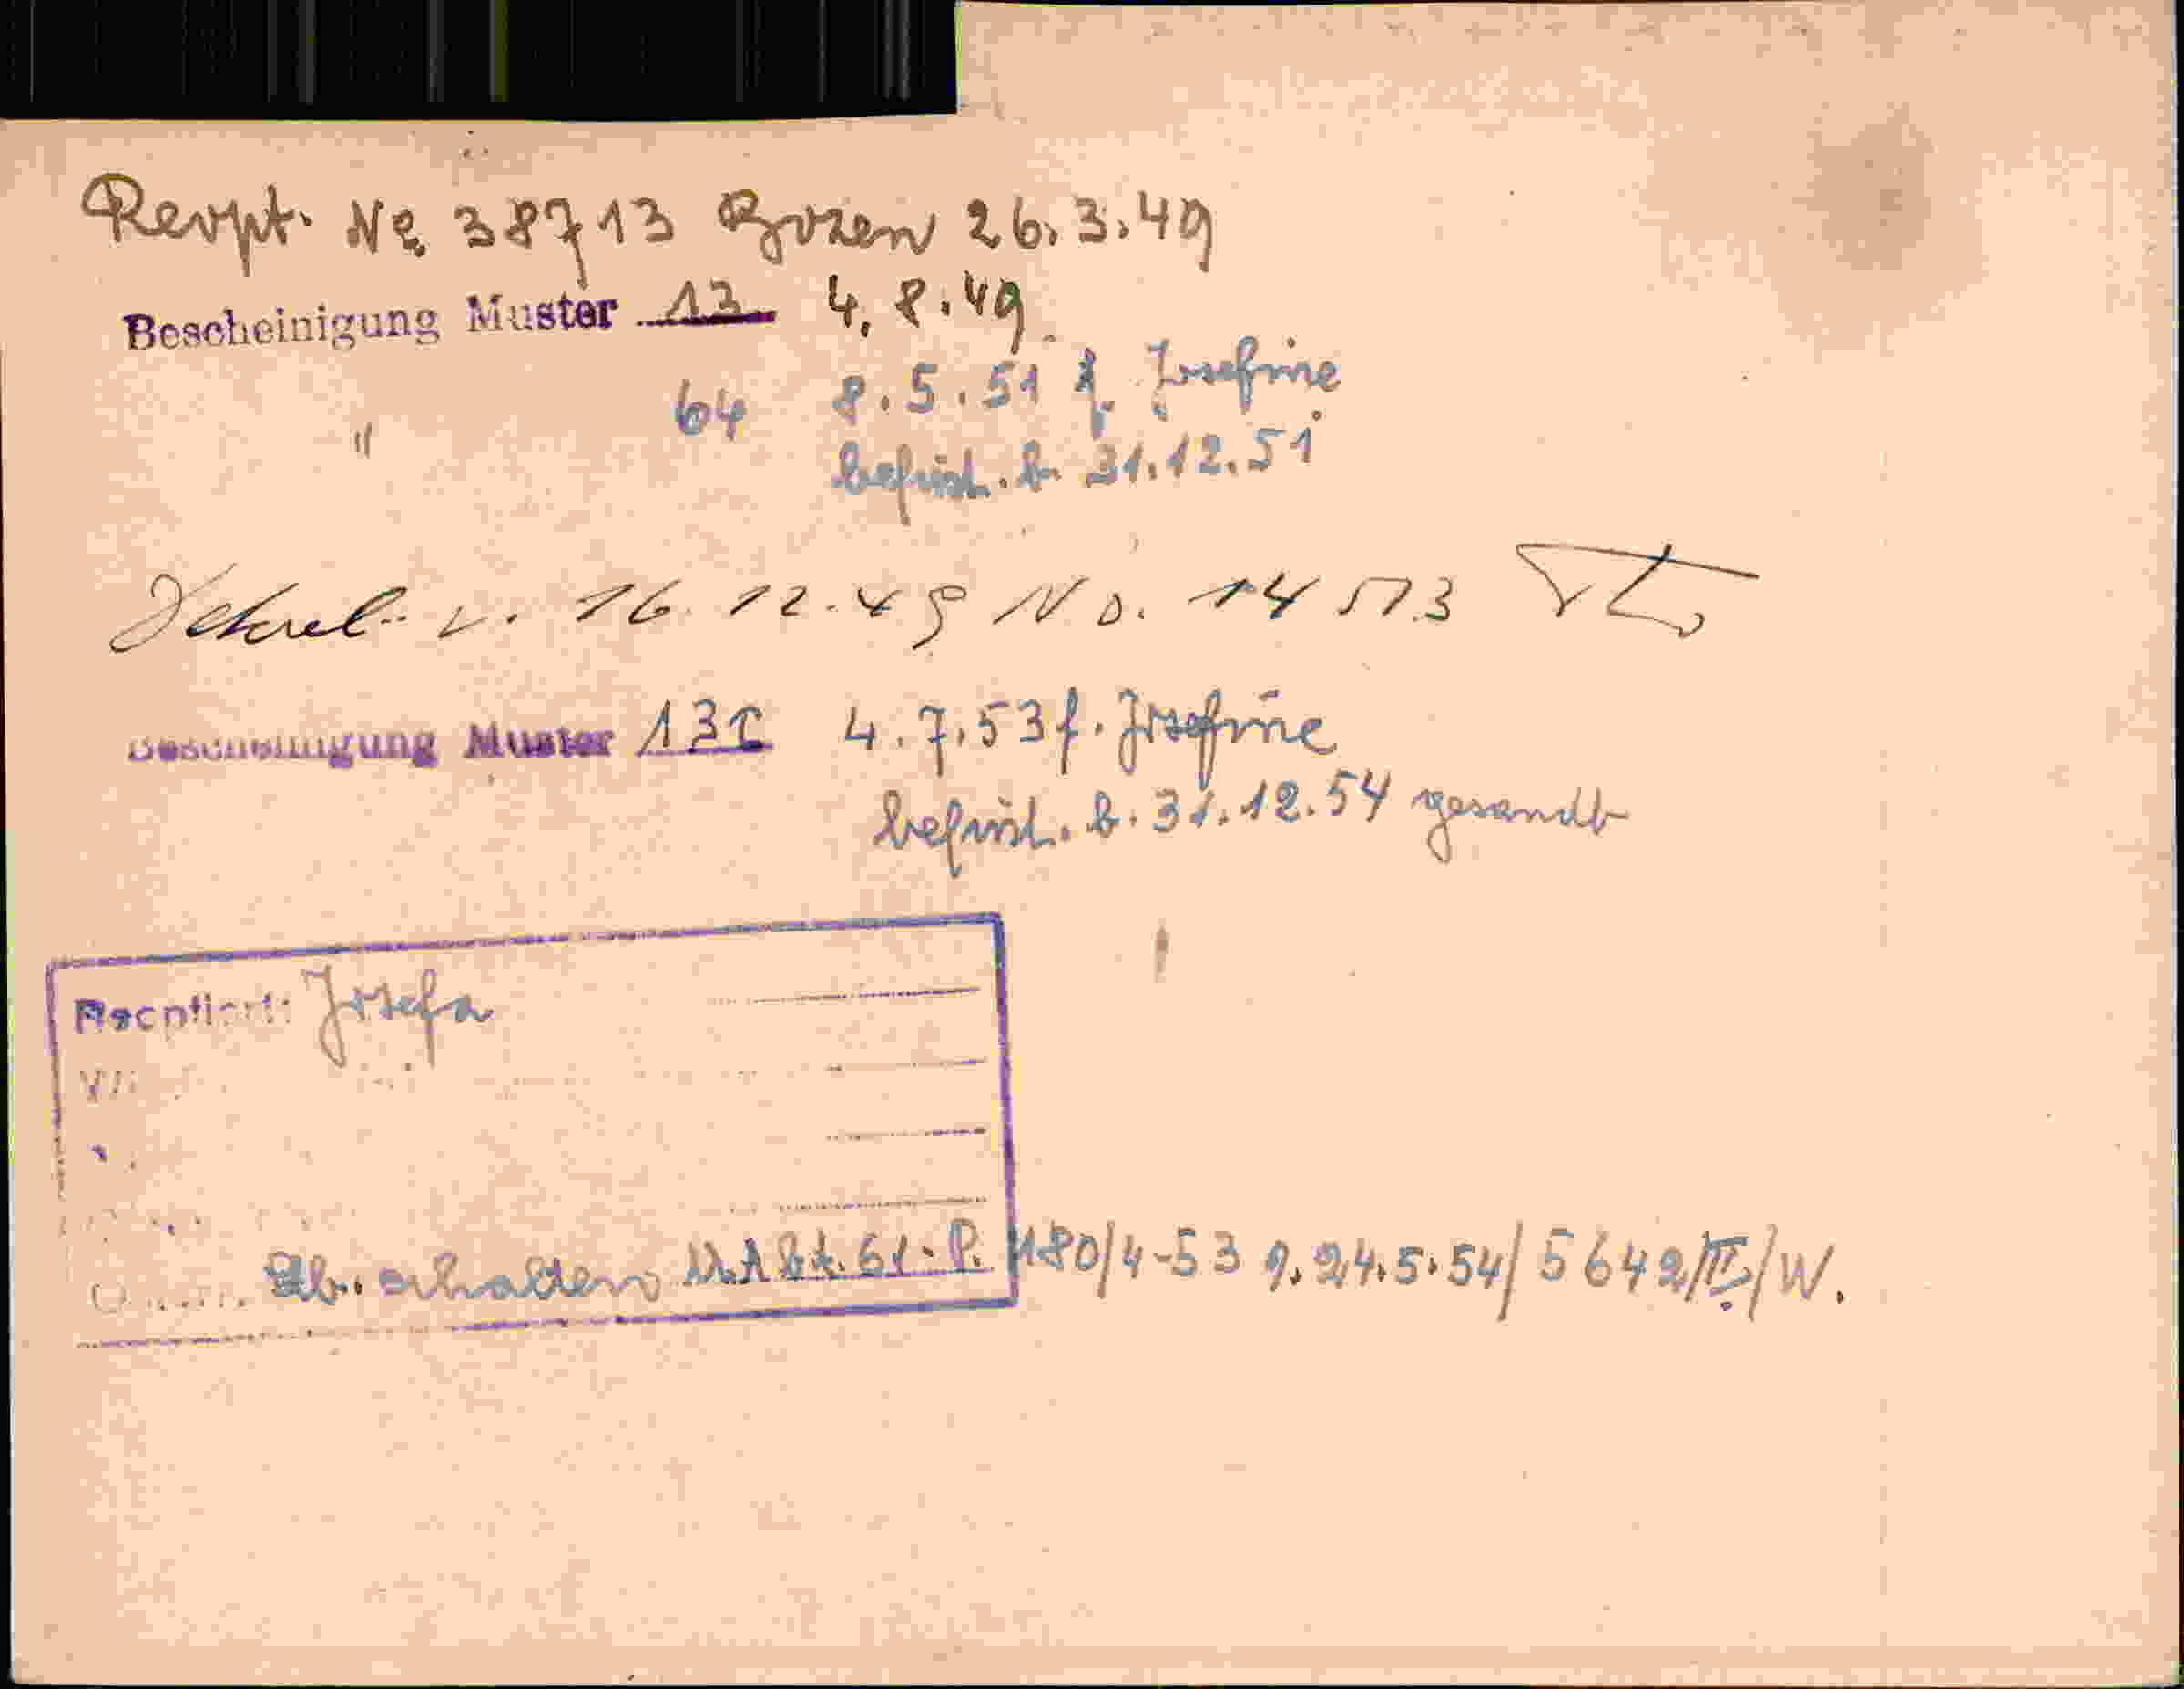 Reopt. No 38713 Bozen 26.3.49
Bescheinigung Muster 13 4.8.49.
" 64 8.5.51 f. Josefine
befrist. b. 31.12.51
Dekret v. 16.12.49 No. 14573
Bescheinigung Muster 13c 4.7.53 f. Josefine
befrist. b. 31.12.54 gesandt
Reoptiert: Josefa
erhalten M.Abt. 61-P. 1180/4-53 24.5.54/5642/II/W.